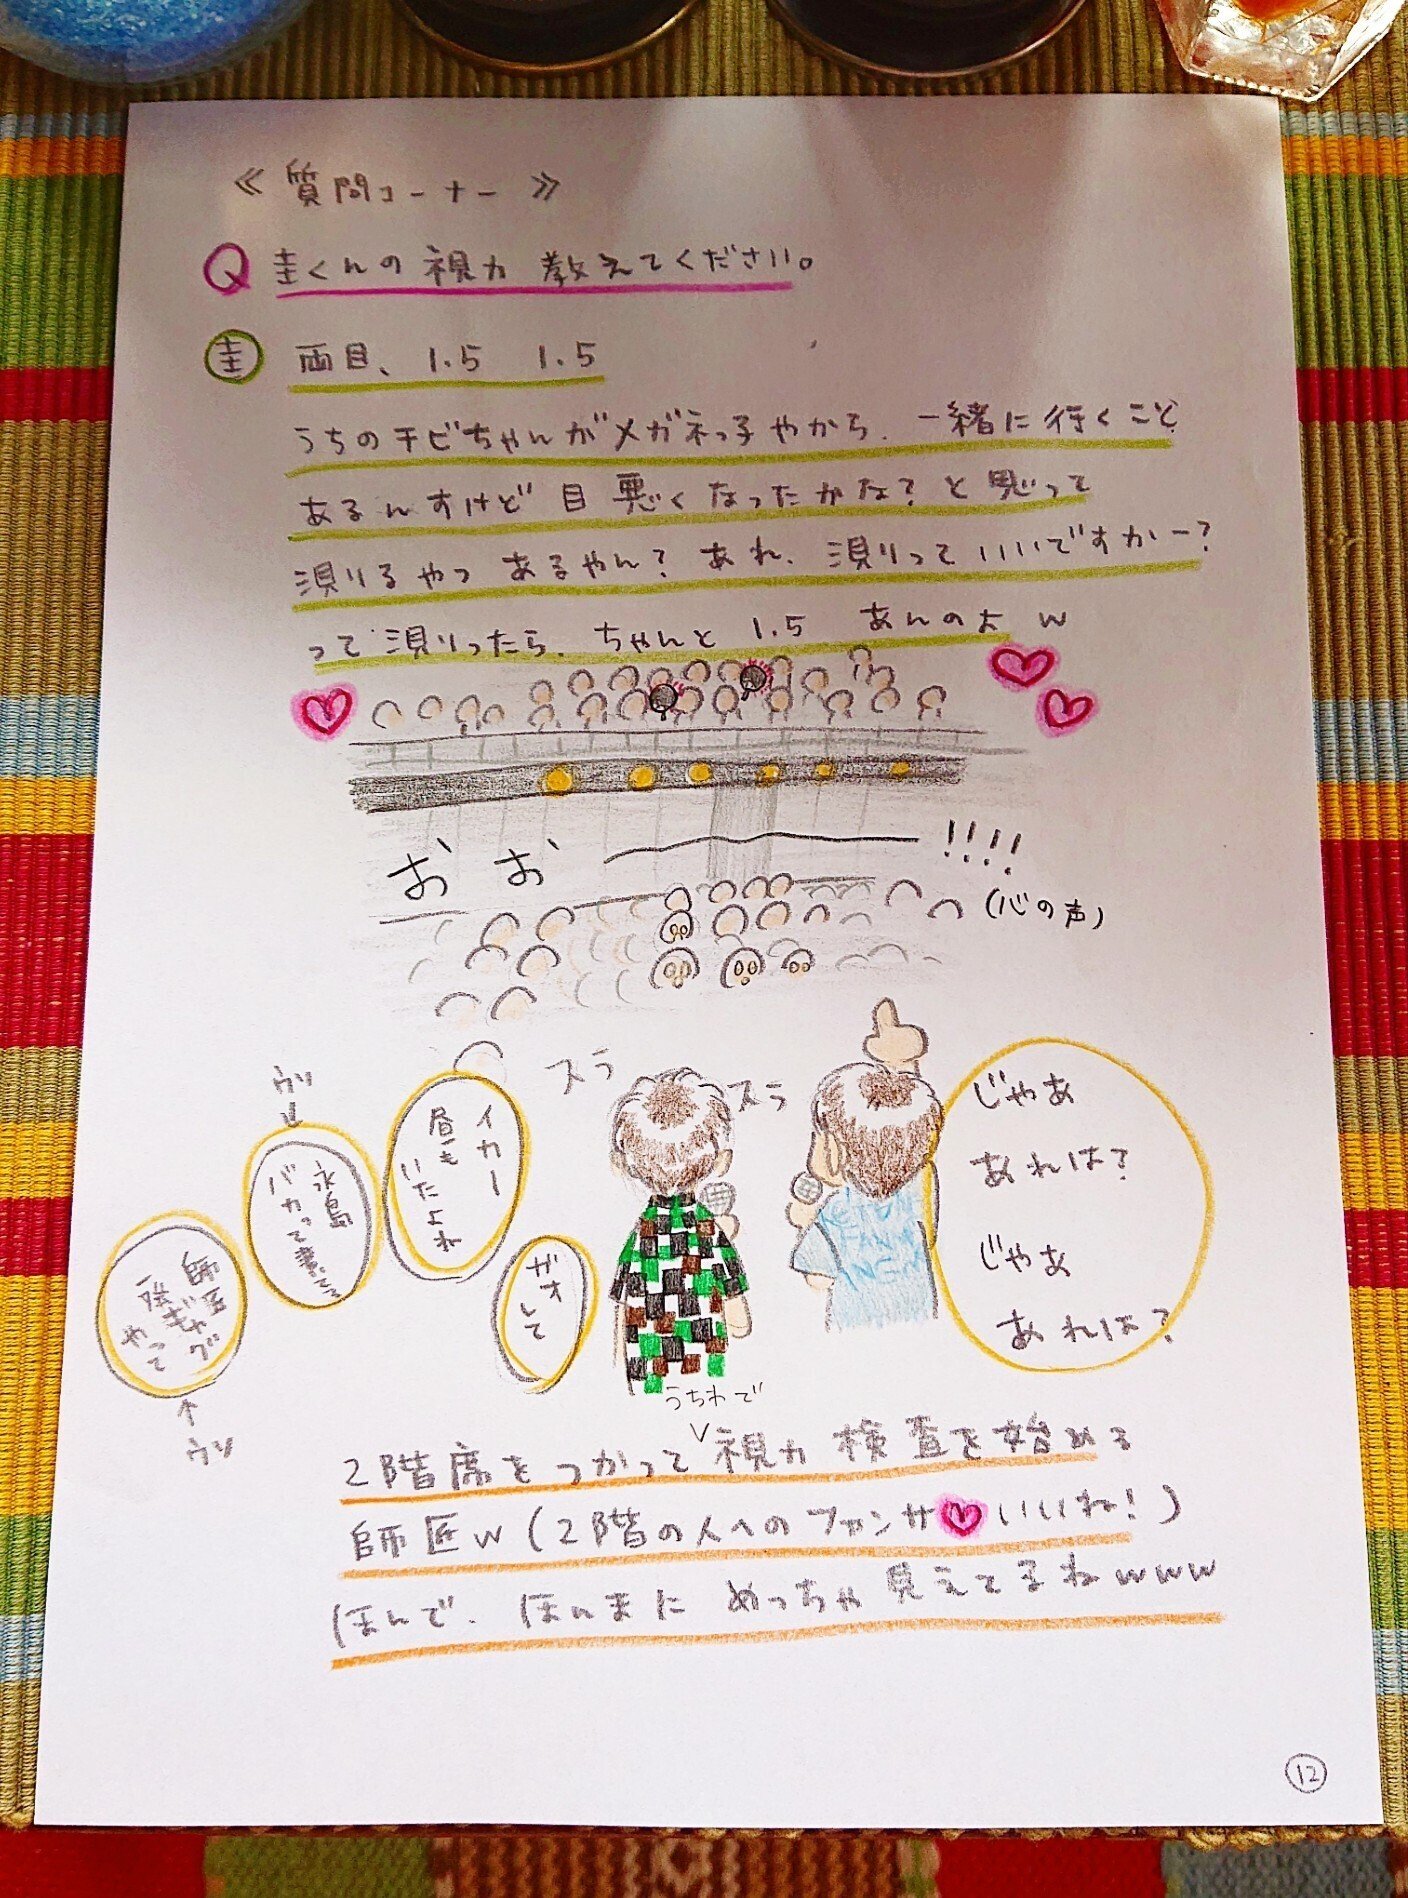 ≪ 質問コーナー ≫
Q 圭くんの視力 教えてください。
圭 両目、1.5 1.5
うちのチビちゃんがメガネっ子やから、一緒に行くこと
あるんすけど 目 悪くなったかな？と思って
測りるやつ あるやん？あれ、測りっていいですかー？
って測りったら、ちゃんと 1.5 あんのよ w
おお――!!!!
(心の声)
スラ スラ
じゃあ
あれは？
じゃあ
あれは？
イカー
昼も
いたよね
ガオ
して
ウソ
↓
永島
バカって書いてる
師匠
ギャグ
やって
↑
ウソ
うちわで
2階席をつかって視力 検査を始める
師匠w（2階の人へのファンサ♡いいね！）
ほんで、ほんまに めっちゃ 見えてるねwww
12